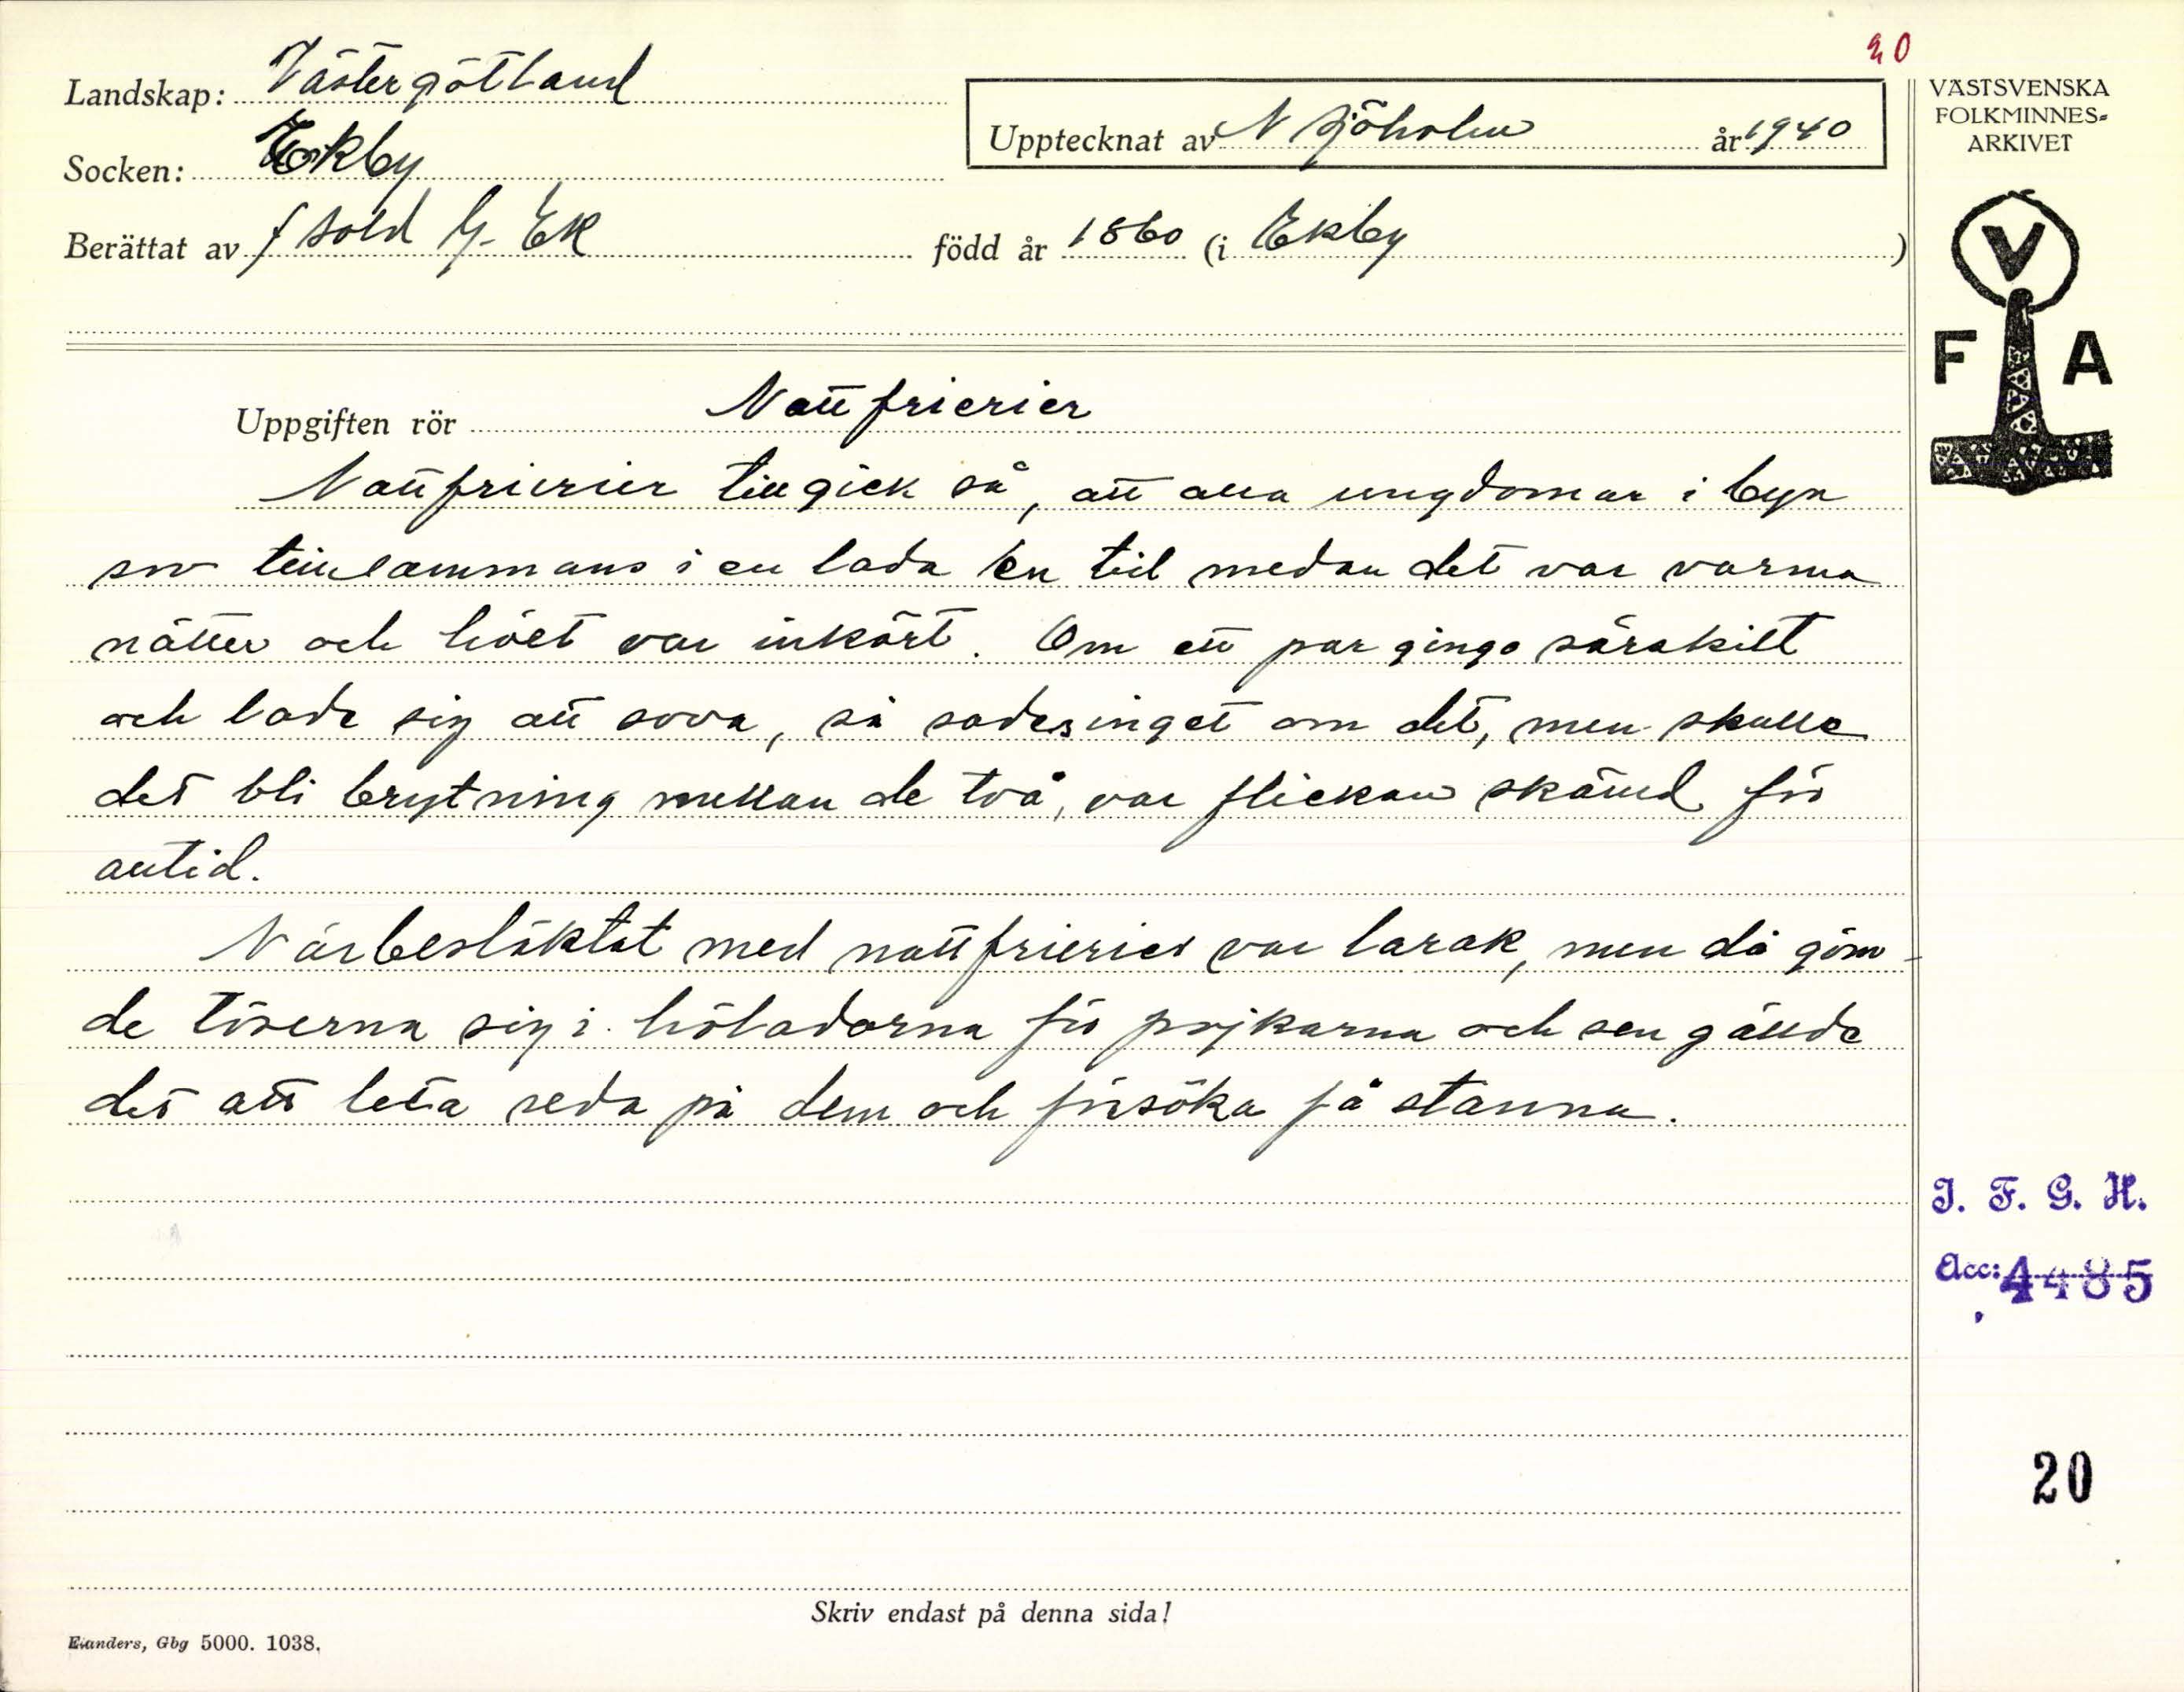 20
Landskap: Västergötland
Socken: Ekby
Upptecknat av N Sjöholm år 1940
Berättat av f sold G. Ek född år 1860 (i Ekby )
VÄSTSVENSKA
FOLKMINNES-
ARKIVET
V
F A
Uppgiften rör Nattfrierier
Nattfrierier tillgick så, att alla ungdomar i byn
sov tillsammans i en lada en tid medan det var varma
nätter och höet var inkört. Om ett par gingo särskilt
och lade sig att sova, så sades inget om det, men skulle
det bli brytning mellan de två, var flickan skämd för
alltid.
Närbesläktat med nattfrierier var larak, men då göm-
de töserna sig i höladorna för pojkarna och sen gällde
det att leta reda på dem och försöka få stanna.
I. F. G. H.
Acc: 4485
20
Skriv endast på denna sida!
Elanders, Gbg 5000. 1038.